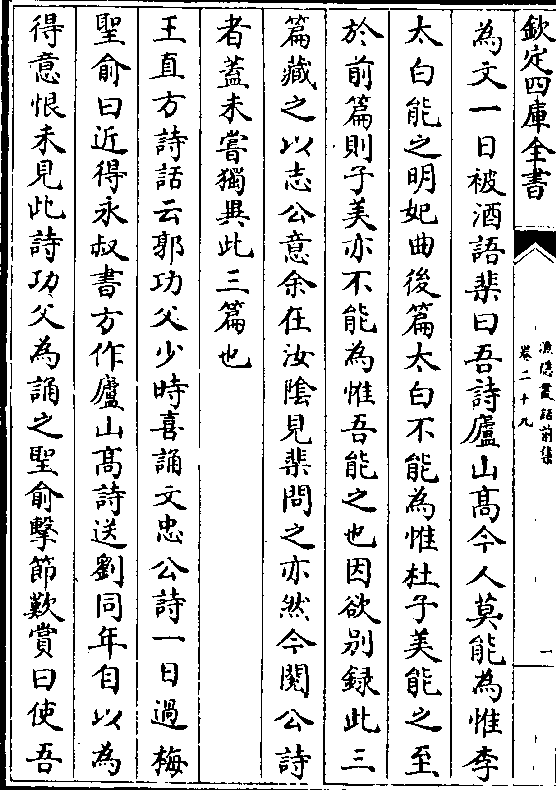 欽定四庫全書
漁隱叢話前集
卷二十九
一
為文一日被酒語棐曰吾詩廬山髙今人莫能為惟李
太白能之明妃曲後篇太白不能為惟杜子美能之至
於前篇則子美亦不能為惟吾能之也因欲别録此三
篇藏之以志公意余在汝隂見棐問之亦然今閲公詩
者蓋未嘗獨異此三篇也
王直方詩話云郭功父少時喜誦文忠公詩一日過梅
聖俞曰近得永叔書方作廬山髙詩送劉同年自以為
得意恨未見此詩功父為誦之聖俞擊節歎賞曰使吾